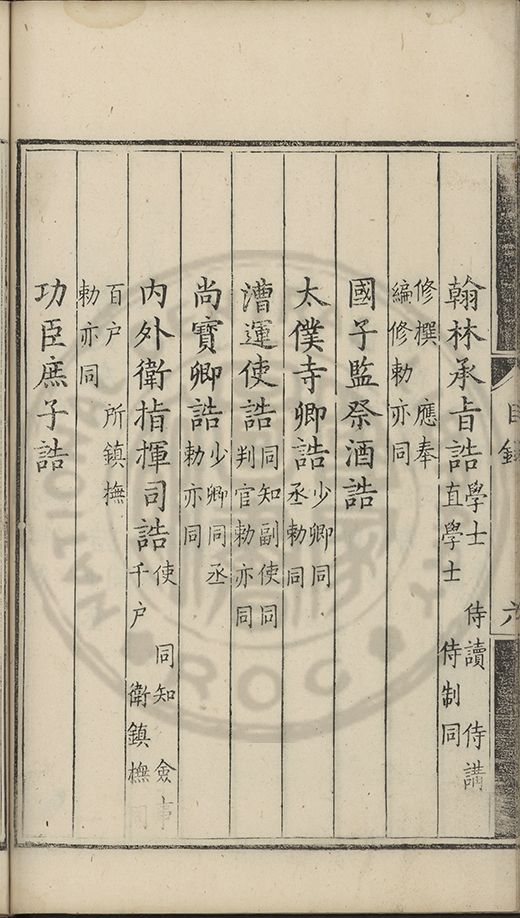 翰林承旨誥學士 侍讀 侍講
直學士 侍制同
修撰 應奉
編修勅亦同
國子監祭酒誥
太僕寺卿誥少卿同
丞勅同
漕運使誥同知副使同
判官勅亦同
尚寶卿誥少卿同丞
勅亦同
內外衛指揮司誥使 同知 僉事
千户 衛鎮撫同
百户 所鎮撫
勅亦同
功臣庶子誥
目錄
六